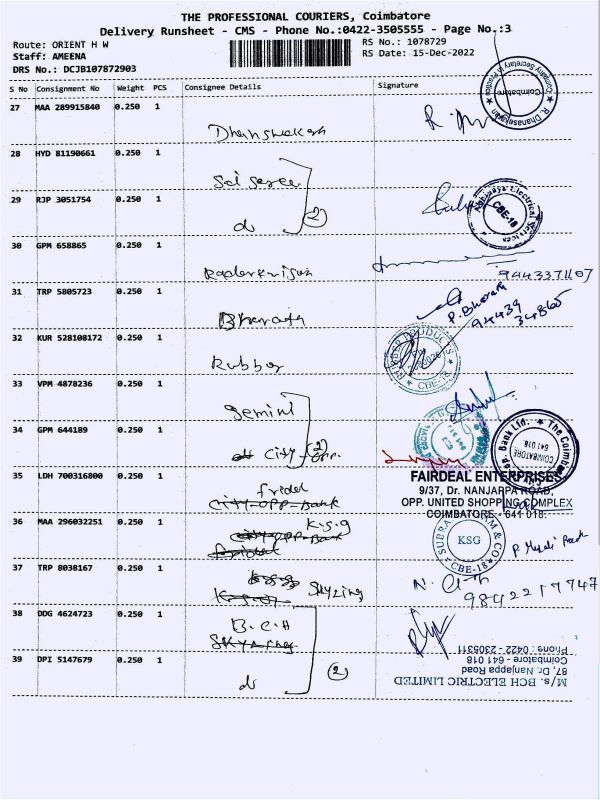 THE PROFESSIONAL COURIERS, Coimbatore
Delivery Runsheet - CMS - Phone No.:0422-3505555 - Page No.:3
Route: ORIENT H W
RS No.: 1078729
Staff: AMEENA
RS Date: 15-Dec-2022
DRS No.: DCJB107872903
S No Consignment No Weight PCS Consignee Details Signature
27 MAA 289915840 0.250 1
R. Dhanasekaran
Company Secretary in Practice
Coimbatore
28 HYD 81190661 0.250 1
29 RJP 3051754 0.250 1
(2)
Abhinaya Electrical Services
CBE-18
30 GPM 658865 0.250 1
9443371107
31 TRP 5805723 0.250 1
Bharath
P. Bharath
94439
34865
32 KUR 528108172 0.250 1
Rubber
RUBBER PRODUCTS
CBE-18
33 VPM 4878236 0.250 1
gemini
34 GPM 644189 0.250 1
City opp. (2)
The Coimb
op. Bank Ltd.
COIMBATORE
641 018
35 LDH 700316800 0.250 1
fridel
City opp Bank
FAIRDEAL ENTERPRISES
9/37, Dr. NANJAPPA ROAD,
OPP. UNITED SHOPPING COMPLEX
COIMBATORE - 641 018.
36 MAA 296032251 0.250 1
City opp Bank K.S.G
KSG
CBE-18
37 TRP 8038167 0.250 1
Skyzing
9842217747
38 DDG 4624723 0.250 1
B.C.H
39 DPI 5147679 0.250 1
(2)
M/s. BCH ELECTRIC LIMITED
87, Dr. Nanjappa Road
Coimbatore - 641 018
Phone : 0422 - 2305311